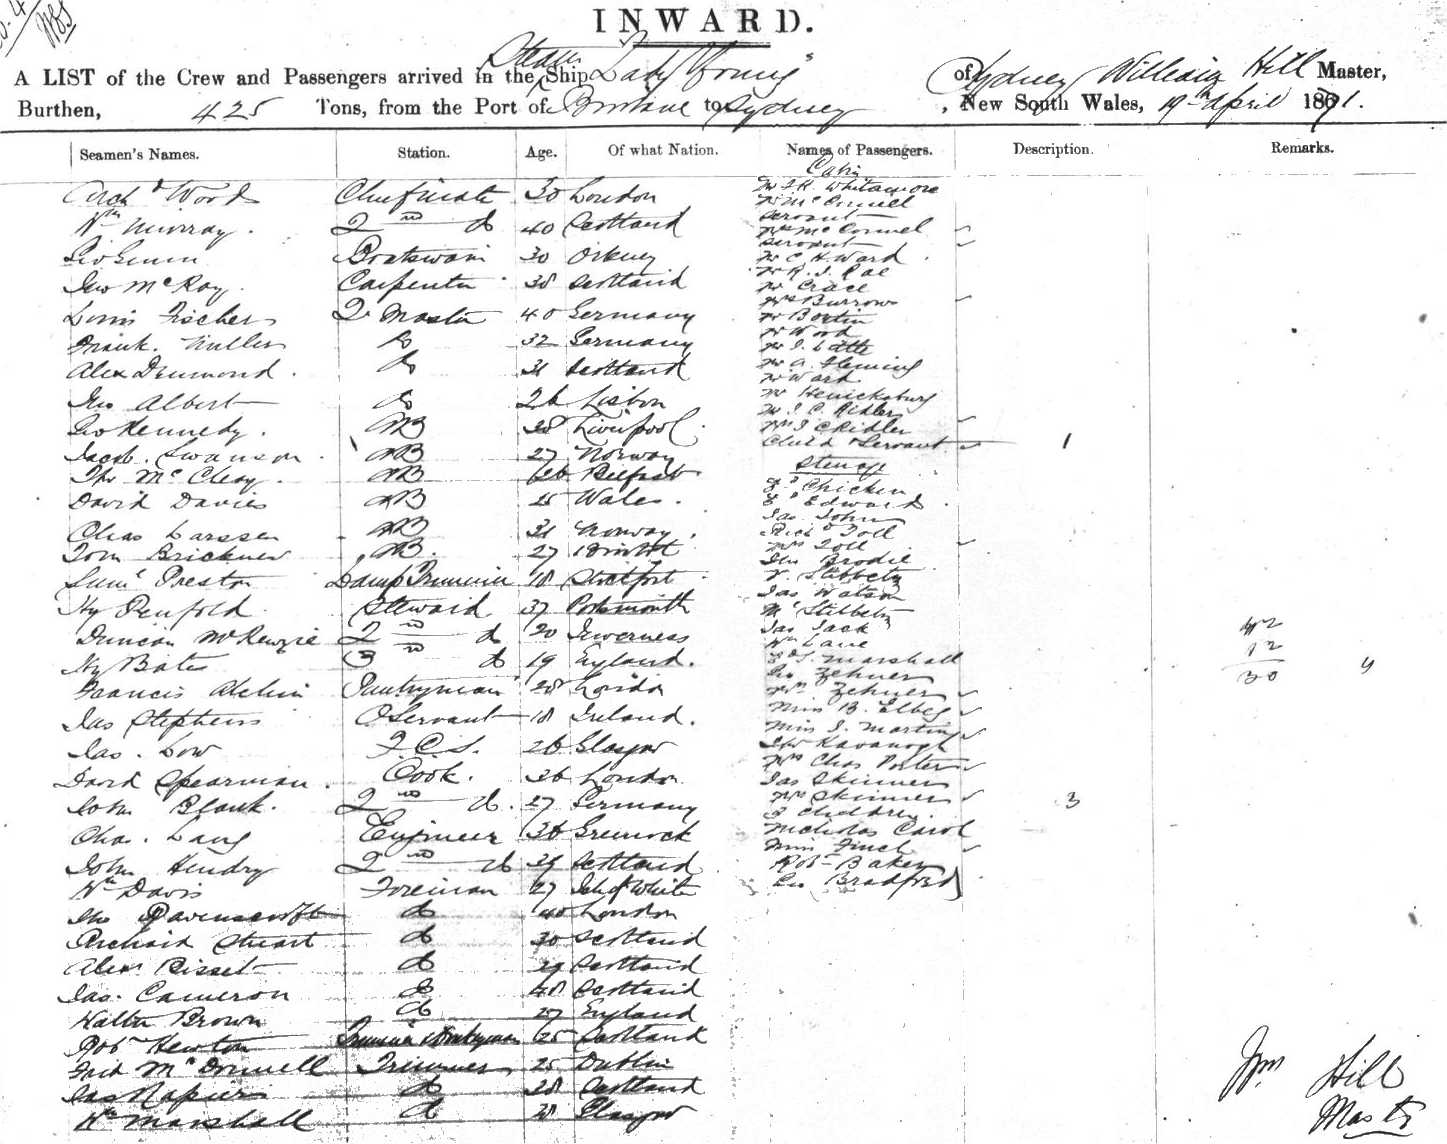 INWARD.
A LIST of the Crew and Passengers arrived in the Steam Ship "Lady Young" of Sydney William Hill Master,
Burthen, 425 Tons, from the Port of Brisbane to Sydney, New South Wales, 19th April 1871.
Seamen's Names. Station. Age. Of what Nation. Names of Passengers. Description. Remarks.
Archd Wood Chief mate 30 London
Wm Murray. 2nd do 40 Scotland
Geo Boatswain 30 Orkney
Jno McKay. Carpenter 38 Scotland
Louis Fischer Qr Master 40 Germany
Frank Do 32 Germany
Alex Drumond. Do Scotland
Jno Albert Do 26 Lisbon
Geo Kennedy. AB 28 Liverpool.
Jacob Swanson. AB 27 Norway
Thos McCleay. AB 26 Belfast
David Davies AB 25 Wales.
Chas Larssen AB Norway.
Tom Brickner AB. 27 Bristol
Saml Preston Lamp Trimmer 18
Hy Penfold Steward 37 Portsmouth
Duncan McKenzie 2nd do 20 Inverness
Hy Bate 3rd do 19 England.
Francis Pantryman 28 London
Jas Stephens Servant 18 Ireland.
Jas. Low F.C.S. 26 Glasgow
David Spearman. Cook. 26 London
John Blank. 2nd do. 27 Germany
Chas. Lang Engineer 36 Greenock
John Hendry 2nd do 29 Scotland
Wm Davis Foreman 27 Isle of White
Jno Ravenscroft do 40 London
Richard Stuart do 30 Scotland
Alexr Bisset do 29 Scotland
Jas. Cameron do 48 Scotland
Walter Brown do 27 England
Robt Hewton Trimmer 25 Scotland
Fred McDonnell Trimmer 25 Dublin
Jas Napier do 28 Scotland
Wm Marshall do 21 Glasgow
Cabin
Mr Whitamore
Mr McConnell
Servant
Mrs McConnel
Servant
Mr C. H. Ward
Mr R. J. Rae
Mr Grace
Mrs Burrows
Mr Bortin
Mr Wood
Mr J. Latte
Mr A. Fleming
Mr Ward
Mr
Mr J. C. Ridler
Mrs J C Ridler
Child & Servant 1
Steerage
Chicken
Edward
Jas. John
Richd Toll
Mrs Toll
Jno Brodie
Stibbets
Jas Watson
Stibbets
Jas Jack
Wm Lane
Marshall
Geo Zehner
Mrs Zehner
Miss B. Elbeg
Miss J. Martin
Jno Kavanagh
Mrs Chas Porter
Jas Skinner
Mrs Skinner
3 Children. 3
Nicholas Carol
Miss Finch
Robt Baker
Geo Bradford
42
12
30
4
Wm Hill
Master